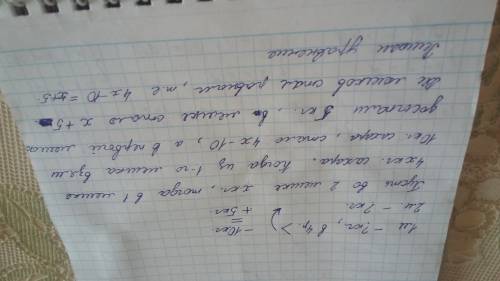 1м - ? кг, в 4р. > - 10кг
2м - ? кг. + 5кг.
Пусть во 2 мешке x кг. тогда в 1 мешке
4x кг. сахара. Когда из 1-го мешка взяли
10кг. сахара, стало 4x-10, а в первый мешок
досыпали 5 кг., в мешке стало x+5
мешков стал равным, т.е 4x-10=x+5
Решаем уравнение